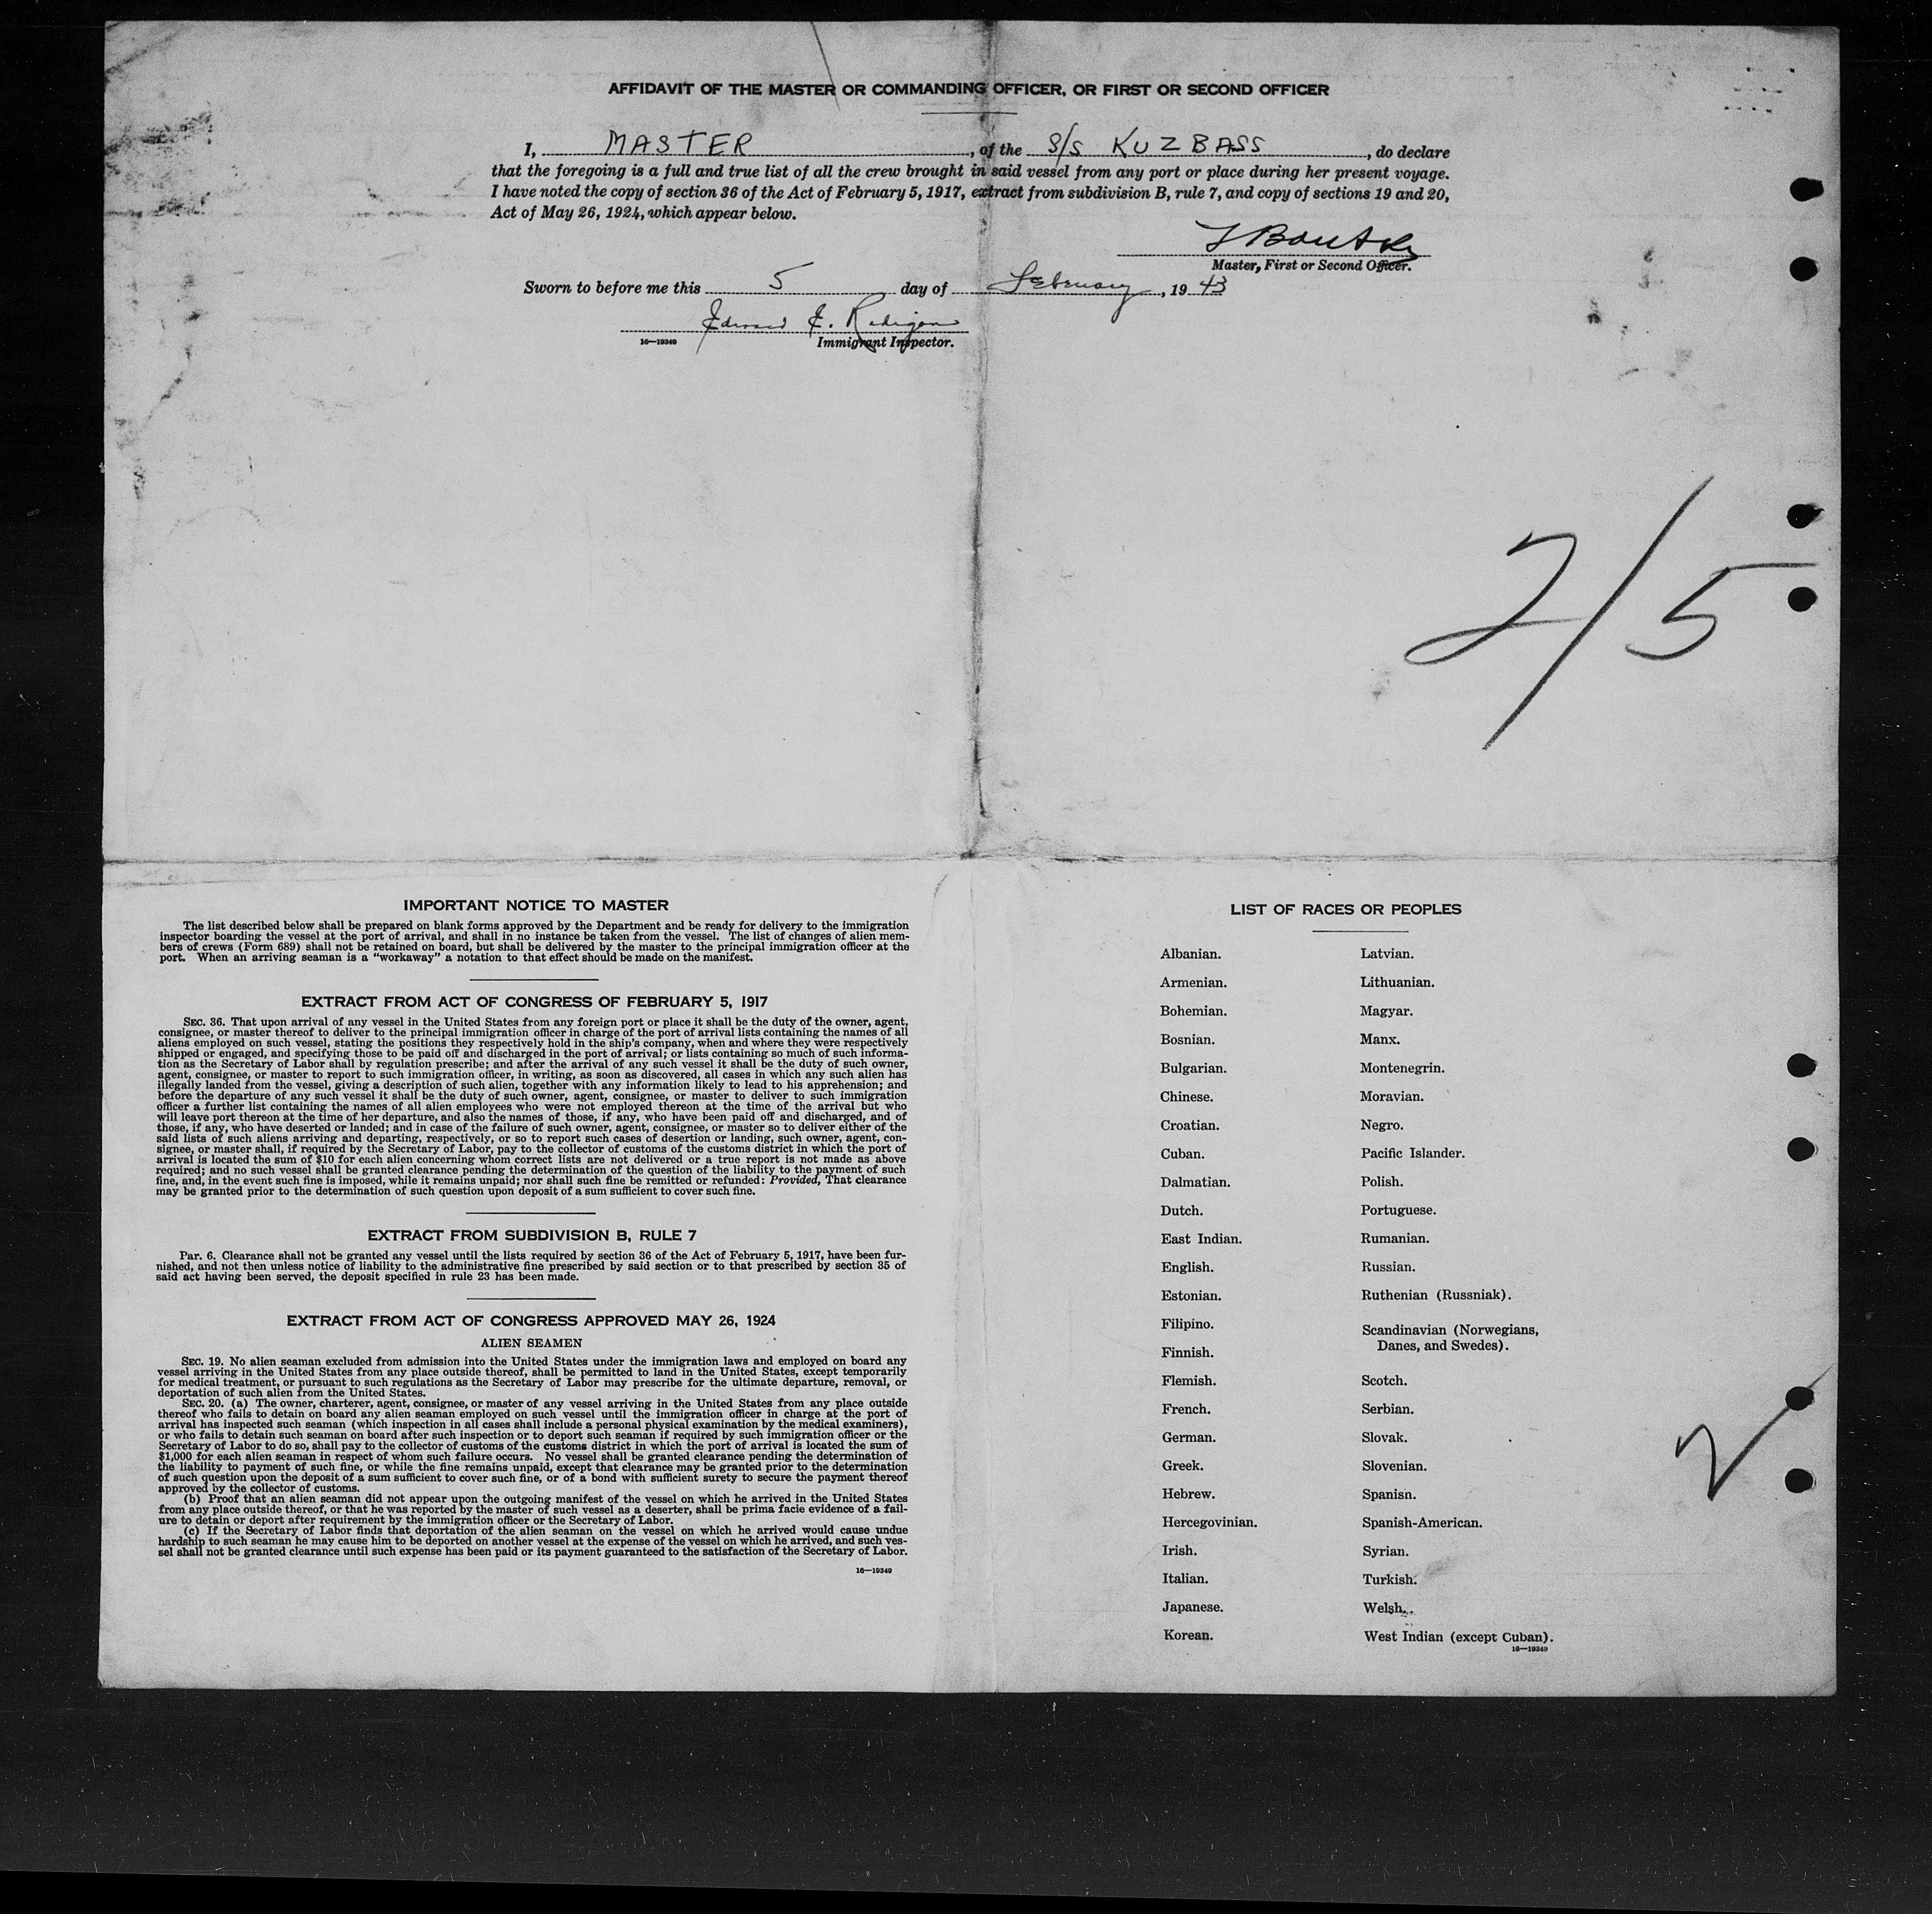 AFFIDAVIT OF THE MASTER OR COMMANDING OFFICER, OR FIRST OR SECOND OFFICER
I, MASTER, of the S/S KUZBASS, do declare
that the foregoing is a full and true list of all the crew brought in said vessel from any port or place during her present voyage.
I have noted the copy of section 36 of the Act of February 5, 1917, extract from subdivision B, rule 7, and copy of sections 19 and 20,
Act of May 26, 1924, which appear below.
Master, First or Second Officer.
Sworn to before me this 5 day of February, 19 43
Edward E.
16—19349 Immigrant Inspector.
2/5
IMPORTANT NOTICE TO MASTER
The list described below shall be prepared on blank forms approved by the Department and be ready for delivery to the immigration
inspector boarding the vessel at the port of arrival, and shall in no instance be taken from the vessel. The list of changes of alien mem-
bers of crews (Form 689) shall not be retained on board, but shall be delivered by the master to the principal immigration officer at the
port. When an arriving seaman is a "workaway" a notation to that effect should be made on the manifest.
EXTRACT FROM ACT OF CONGRESS OF FEBRUARY 5, 1917
SEC. 36. That upon arrival of any vessel in the United States from any foreign port or place it shall be the duty of the owner, agent,
consignee, or master thereof to deliver to the principal immigration officer in charge of the port of arrival lists containing the names of all
aliens employed on such vessel, stating the positions they respectively hold in the ship's company, when and where they were respectively
shipped or engaged, and specifying those to be paid off and discharged in the port of arrival; or lists containing so much of such informa-
tion as the Secretary of Labor shall by regulation prescribe; and after the arrival of any such vessel it shall be the duty of such owner,
agent, consignee, or master to report to such immigration officer, in writing, as soon as discovered, all cases in which any such alien has
illegally landed from the vessel, giving a description of such alien, together with any information likely to lead to his apprehension; and
before the departure of any such vessel it shall be the duty of such owner, agent, consignee, or master to deliver to such immigration
officer a further list containing the names of all alien employees who were not employed thereon at the time of the arrival but who
will leave port thereon at the time of her departure, and also the names of those, if any, who have been paid off and discharged, and of
those, if any, who have deserted or landed; and in case of the failure of such owner, agent, consignee, or master so to deliver either of the
said lists of such aliens arriving and departing, respectively, or so to report such cases of desertion or landing, such owner, agent, con-
signee, or master shall, if required by the Secretary of Labor, pay to the collector of customs of the customs district in which the port of
arrival is located the sum of $10 for each alien concerning whom correct lists are not delivered or a true report is not made as above
required; and no such vessel shall be granted clearance pending the determination of the question of the liability to the payment of such
fine, and, in the event such fine is imposed, while it remains unpaid; nor shall such fine be remitted or refunded: Provided, That clearance
may be granted prior to the determination of such question upon deposit of a sum sufficient to cover such fine.
EXTRACT FROM SUBDIVISION B, RULE 7
Par. 6. Clearance shall not be granted any vessel until the lists required by section 36 of the Act of February 5, 1917, have been fur-
nished, and not then unless notice of liability to the administrative fine prescribed by said section or to that prescribed by section 35 of
said act having been served, the deposit specified in rule 23 has been made.
EXTRACT FROM ACT OF CONGRESS APPROVED MAY 26, 1924
ALIEN SEAMEN
SEC. 19. No alien seaman excluded from admission into the United States under the immigration laws and employed on board any
vessel arriving in the United States from any place outside thereof, shall be permitted to land in the United States, except temporarily
for medical treatment, or pursuant to such regulations as the Secretary of Labor may prescribe for the ultimate departure, removal, or
deportation of such alien from the United States.
SEC. 20. (a) The owner, charterer, agent, consignee, or master of any vessel arriving in the United States from any place outside
thereof who fails to detain on board any alien seaman employed on such vessel until the immigration officer in charge at the port of
arrival has inspected such seaman (which inspection in all cases shall include a personal physical examination by the medical examiners),
or who fails to detain such seaman on board after such inspection or to deport such seaman if required by such immigration officer or the
Secretary of Labor to do so, shall pay to the collector of customs of the customs district in which the port of arrival is located the sum of
$1,000 for each alien seaman in respect of whom such failure occurs. No vessel shall be granted clearance pending the determination of
the liability to payment of such fine, or while the fine remains unpaid, except that clearance may be granted prior to the determination
of such question upon the deposit of a sum sufficient to cover such fine, or of a bond with sufficient surety to secure the payment thereof
approved by the collector of customs.
(b) Proof that an alien seaman did not appear upon the outgoing manifest of the vessel on which he arrived in the United States
from any place outside thereof, or that he was reported by the master of such vessel as a deserter, shall be prima facie evidence of a fail-
ure to detain or deport after requirement by the immigration officer or the Secretary of Labor.
(c) If the Secretary of Labor finds that deportation of the alien seaman on the vessel on which he arrived would cause undue
hardship to such seaman he may cause him to be deported on another vessel at the expense of the vessel on which he arrived, and such ves-
sel shall not be granted clearance until such expense has been paid or its payment guaranteed to the satisfaction of the Secretary of Labor.
16—19349
LIST OF RACES OR PEOPLES
Albanian.
Armenian.
Bohemian.
Bosnian.
Bulgarian.
Chinese.
Croatian.
Cuban.
Dalmatian.
Dutch.
East Indian.
English.
Estonian.
Filipino.
Finnish.
Flemish.
French.
German.
Greek.
Hebrew.
Hercegovinian.
Irish.
Italian.
Japanese.
Korean.
Latvian.
Lithuanian.
Magyar.
Manx.
Montenegrin.
Moravian.
Negro.
Pacific Islander.
Polish.
Portuguese.
Rumanian.
Russian.
Ruthenian (Russniak).
Scandinavian (Norwegians,
Danes, and Swedes).
Scotch.
Serbian.
Slovak.
Slovenian.
Spanisn.
Spanish-American.
Syrian.
Turkish.
Welsh.
West Indian (except Cuban).
16—19349